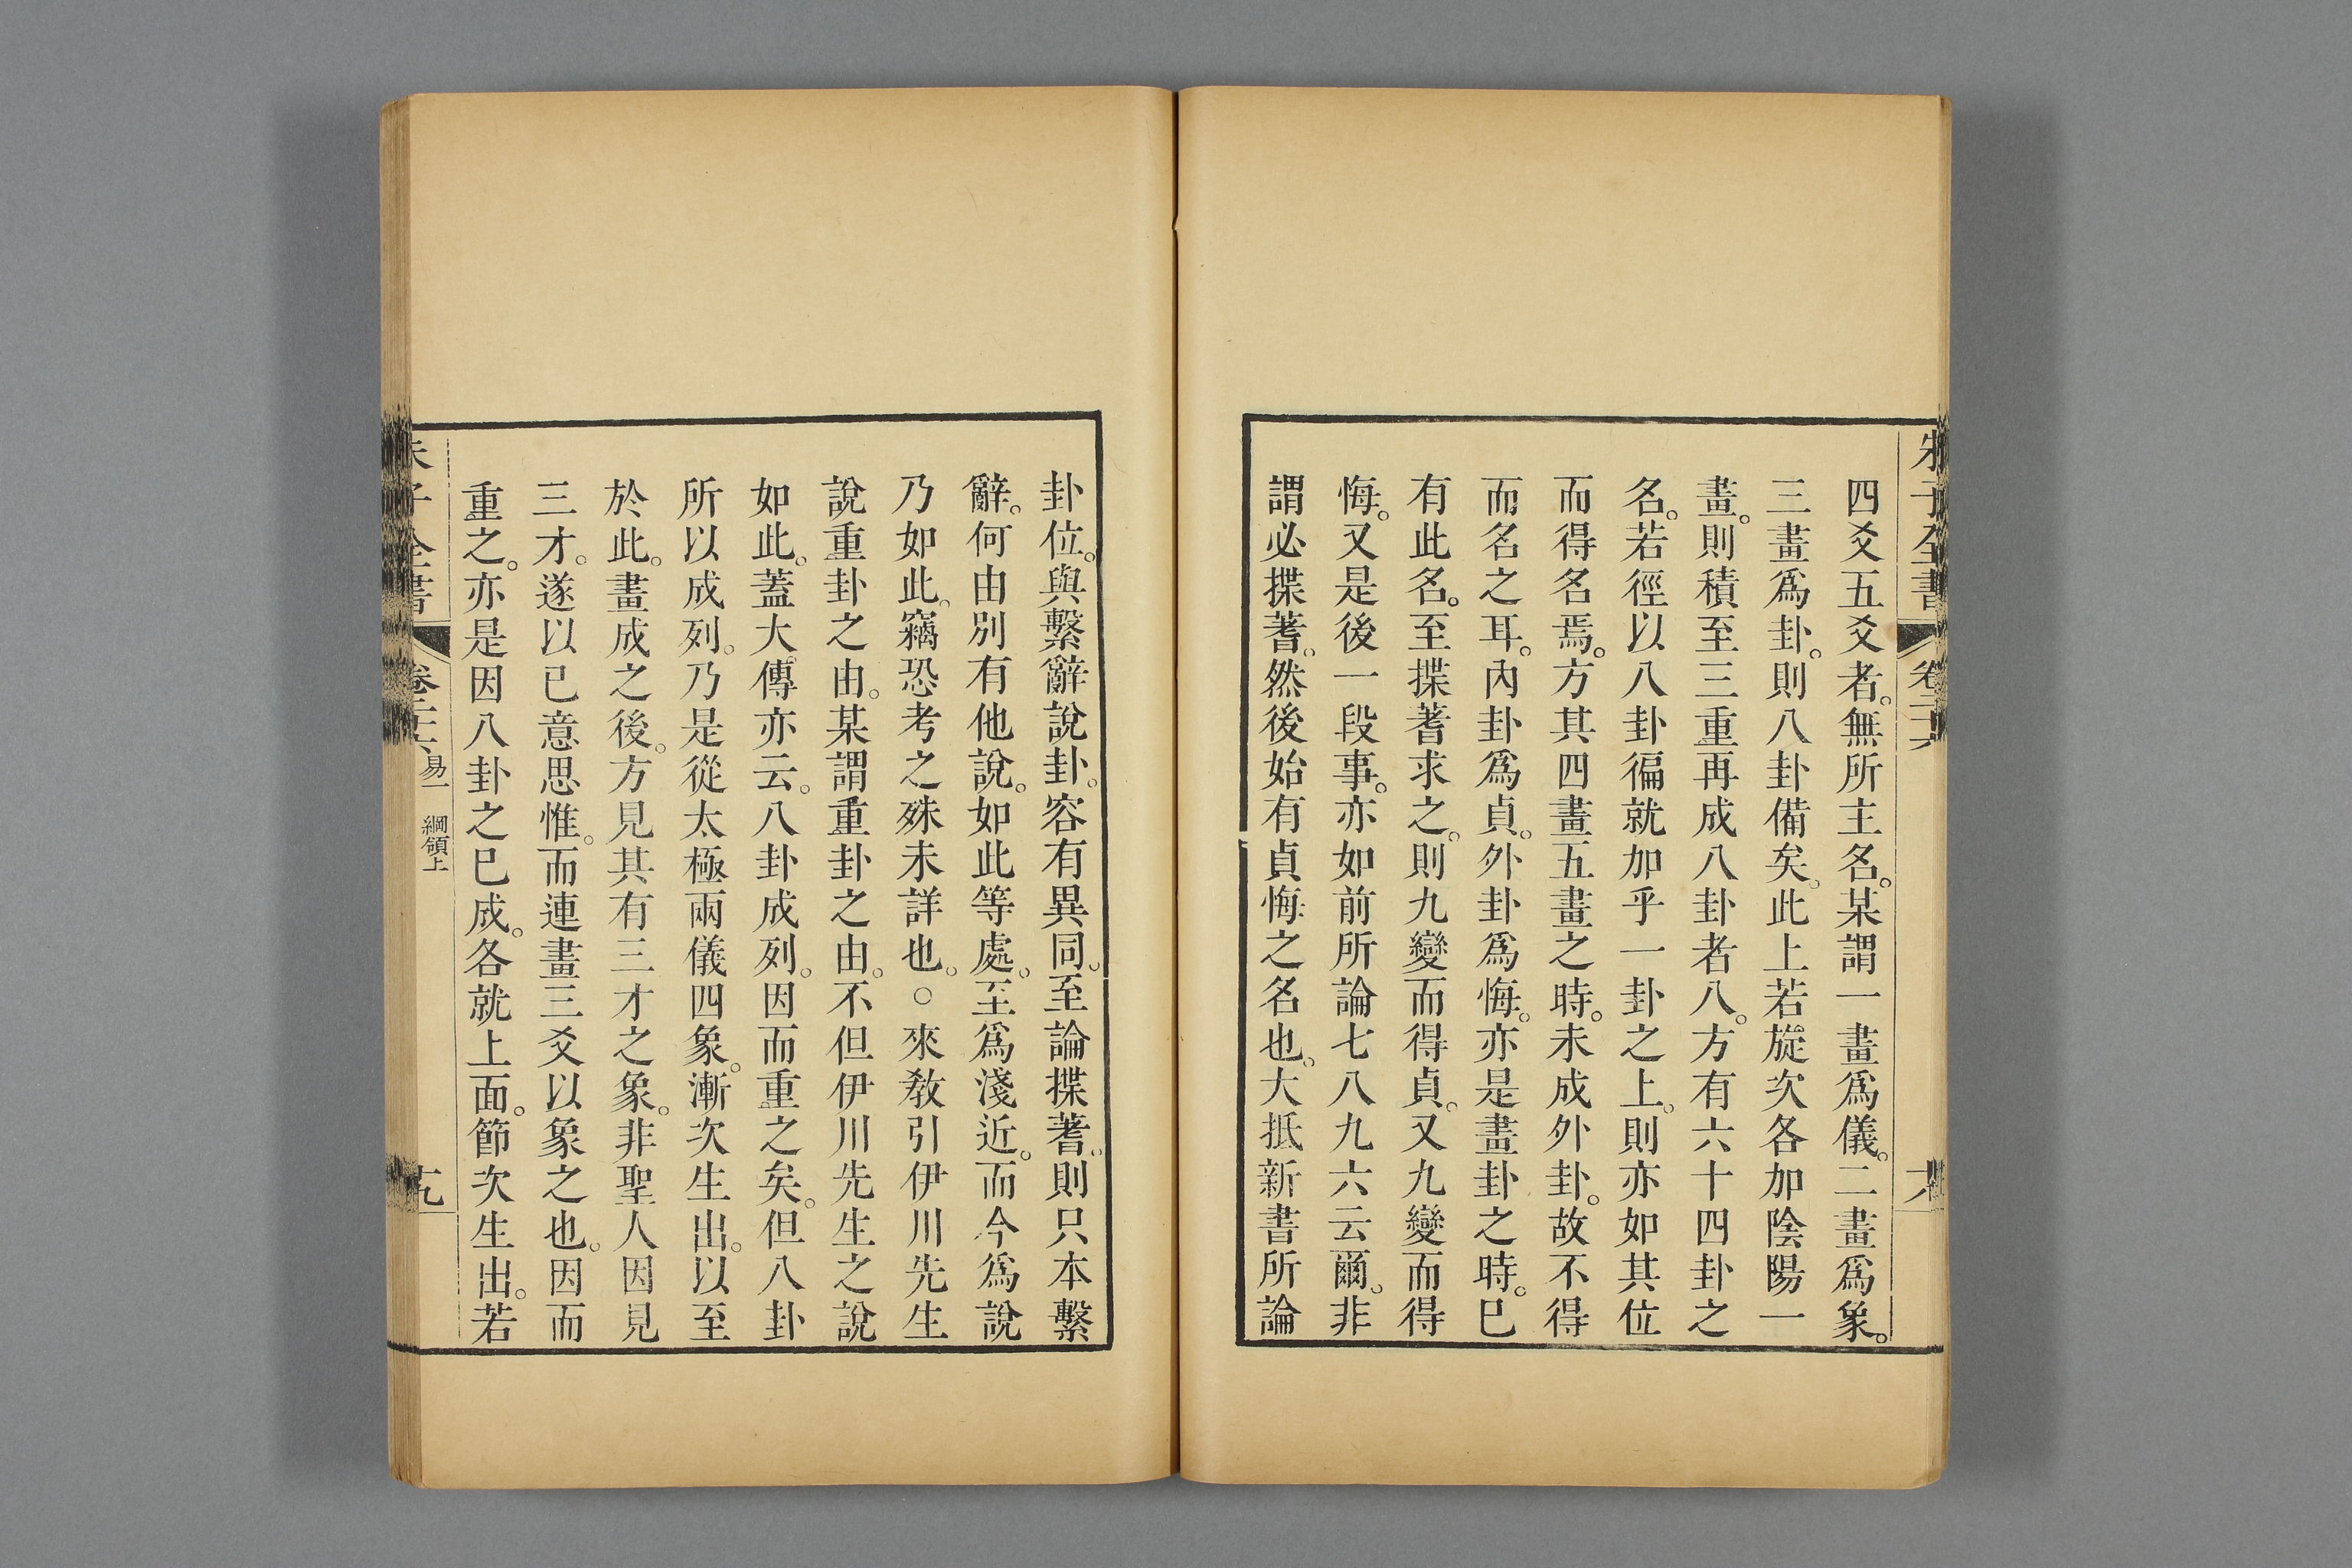 朱子全書 卷二十六
四爻五爻者。無所主名。某謂一畫爲儀。二畫爲象。
三畫爲卦。則八卦備矣。此上若旋次各加陰陽一
畫。則積至三重再成八卦者八。方有六十四卦之
名。若徑以八卦徧就加乎一卦之上。則亦如其位
而得名焉。方其四畫五畫之時。未成外卦。故不得
而名之耳。內卦爲貞。外卦爲悔。亦是畫卦之時。巳
有此名。至揲蓍求之。則九變而得貞。又九變而得
悔。又是後一段事。亦如前所論七八九六云爾。非
謂必揲蓍。然後始有貞悔之名也。大抵新書所論
卦位。與繫辭說卦。容有異同。至論揲蓍。則只本繫
辭。何由別有他說。如此等處。至爲淺近。而今爲說
乃如此。竊恐考之殊未詳也。○來敎引伊川先生
說重卦之由。某謂重卦之由。不但伊川先生之說
如此。蓋大傳亦云。八卦成列。因而重之矣。但八卦
所以成列。乃是從太極兩儀四象。漸次生出。以至
於此。畫成之後。方見其有三才之象。非聖人因見
三才。遂以已意思惟。而連畫三爻以象之也。因而
重之。亦是因八卦之巳成。各就上面。節次生出。若
朱子全書 卷二十六 易一 綱領上 十九